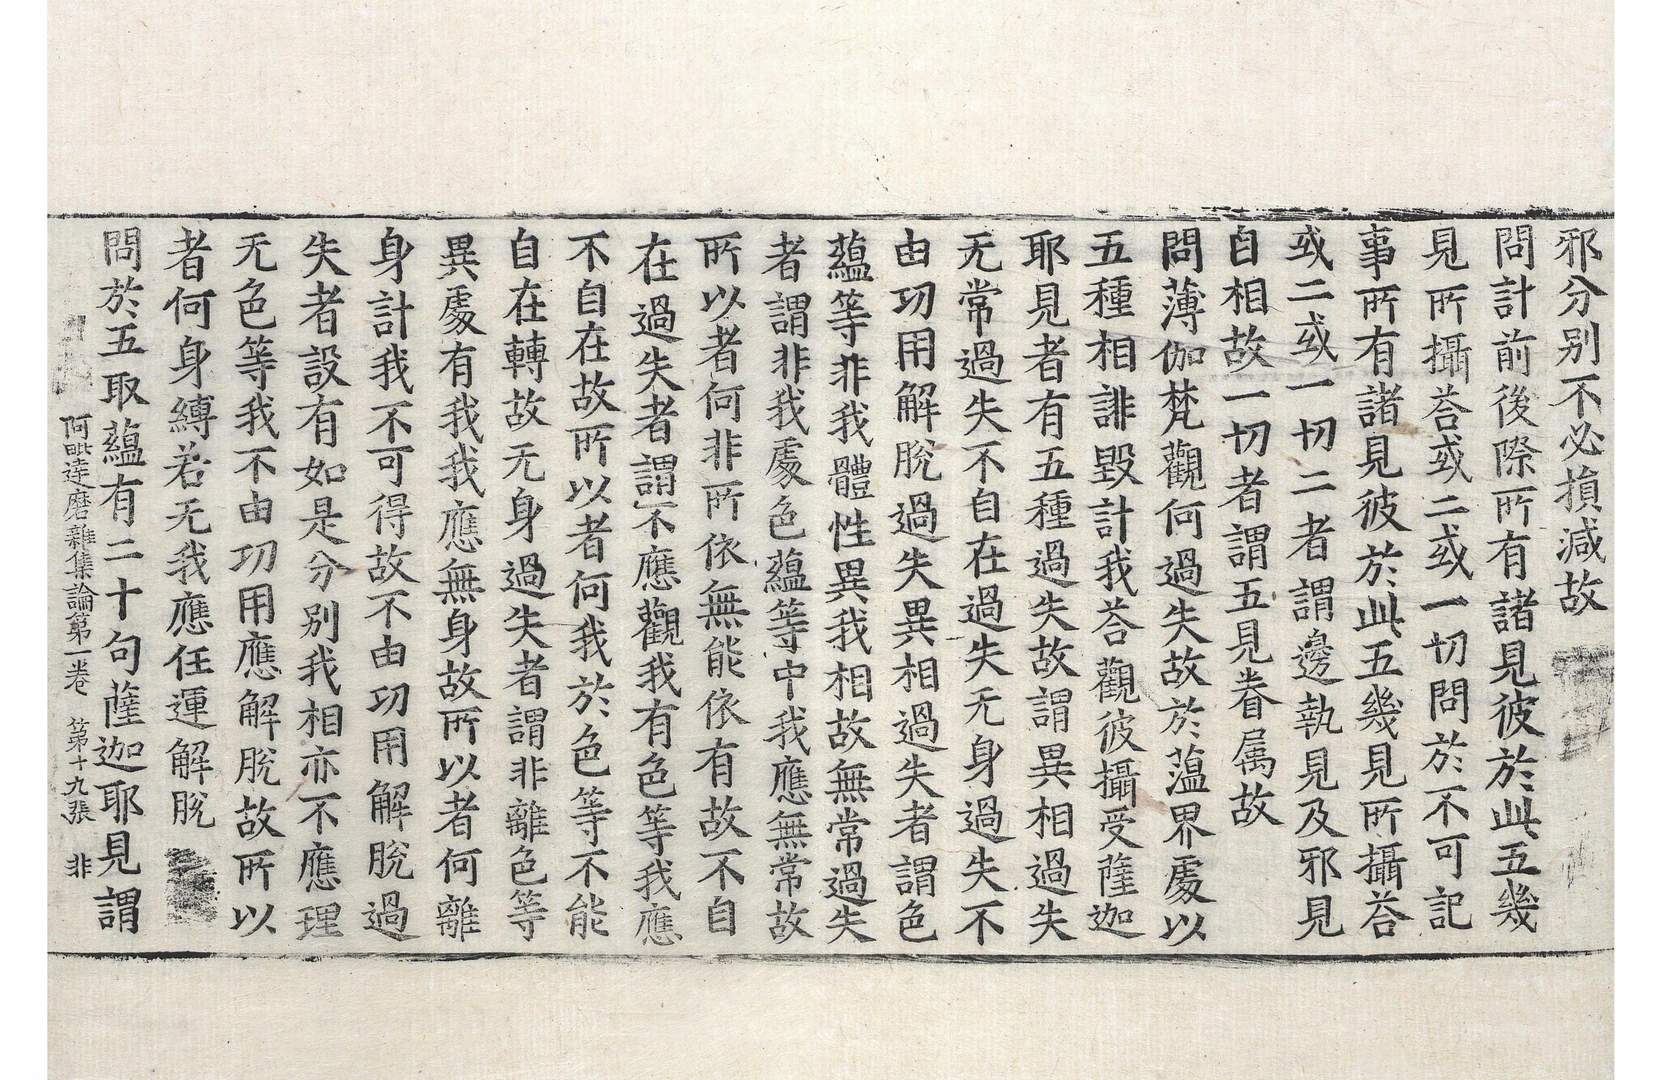 邪分別不必損減故
問計前後際所有諸見彼於此五幾
見所攝荅或二或一切問於不可記
事所有諸見彼於此五幾見所攝荅
或二或一切二者謂邊執見及邪見
自相故一切者謂五見眷属故
問薄伽梵觀何過失故於薀界處以
五種相誹毀計我荅觀彼攝受薩迦
耶見者有五種過失故謂異相過失
无常過失不自在過失无身過失不
由㓛用解脫過失異相過失者謂色
蘊等非我體性異我相故無常過失
者謂非我處色蘊等中我應無常故
所以者何非所依無能依有故不自
在過失者謂不應觀我有色等我應
不自在故所以者何我於色等不能
自在轉故无身過失者謂非離色等
異處有我我應無身故所以者何離
身計我不可得故不由㓛用解脫過
失者設有如是分別我相亦不應理
无色等我不由㓛用應解脫故所以
者何身縛若无我應任運解脫
問於五取蘊有二十句薩迦耶見謂
阿毗達磨雜集論第一卷 第十九張 非